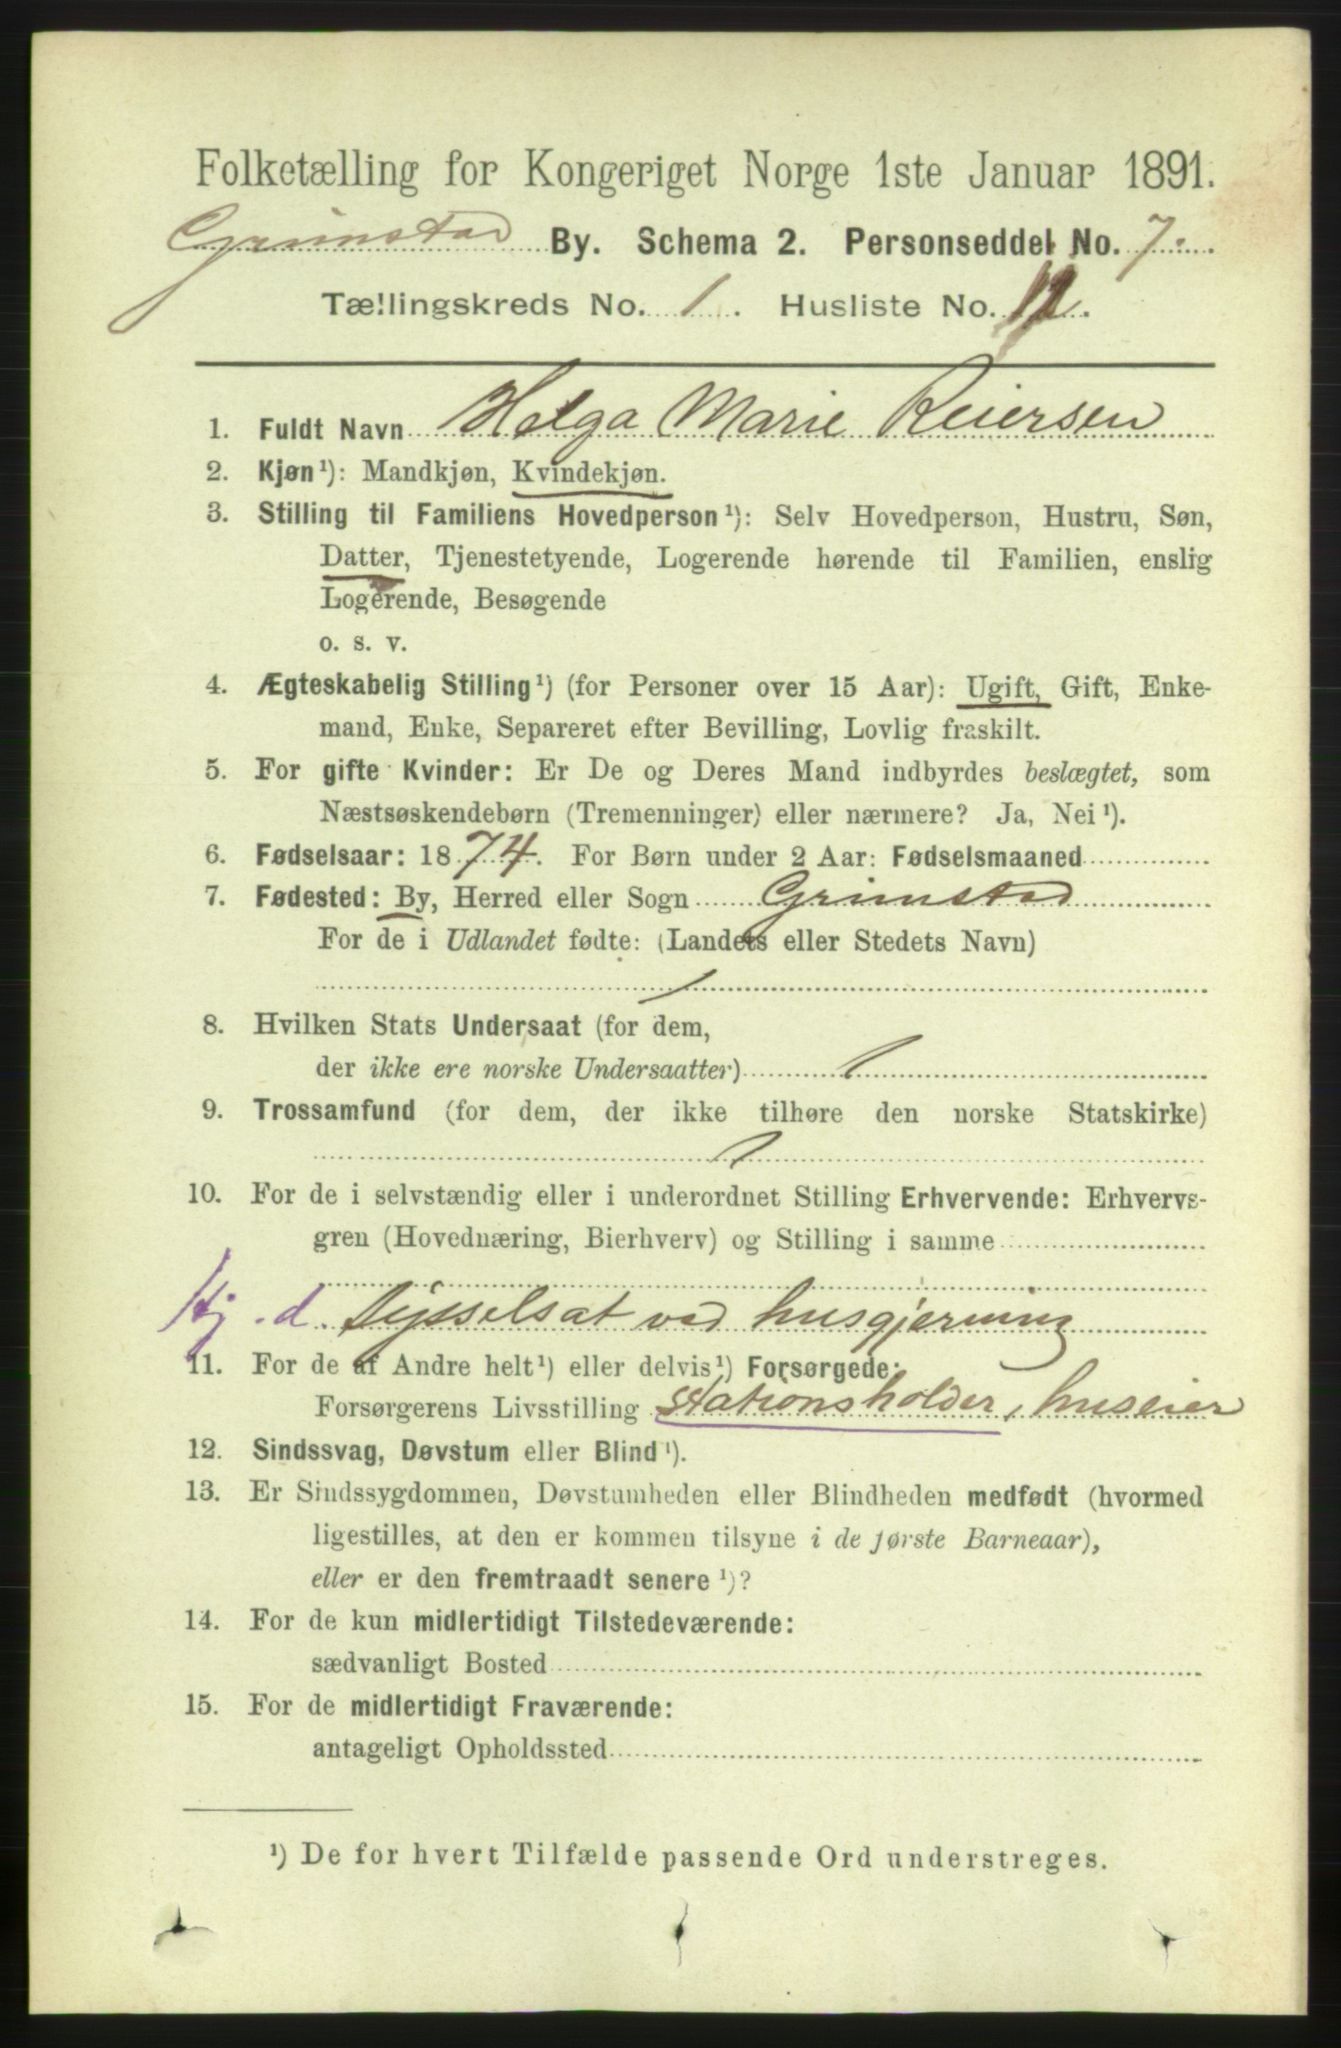 Folketælling for Kongeriget Norge 1ste Januar 1891.
Grimstad By. Schema 2. Personseddel No. 7.
Tællingskreds No. 1. Husliste No.
1. Fuldt Navn Helga Marie Reiersen
2. Kjøn¹): Mandkjøn, Kvindekjøn.
3. Stilling til Familiens Hovedperson¹): Selv Hovedperson, Hustru, Søn,
Datter, Tjenestetyende, Logerende hørende til Familien, enslig
Logerende, Besøgende
o. s. v.
4. Ægteskabelig Stilling¹) (for Personer over 15 Aar): Ugift, Gift, Enke-
mand, Enke, Separeret efter Bevilling, Lovlig fraskilt.
5. For gifte Kvinder: Er De og Deres Mand indbyrdes beslægtet, som
Næstsøskendebørn (Tremenninger) eller nærmere? Ja, Nei¹).
6. Fødselsaar: 1874. For Børn under 2 Aar: Fødselsmaaned
7. Fødested: By, Herred eller Sogn Grimstad
For de i Udlandet fødte: (Landets eller Stedets Navn)
8. Hvilken Stats Undersaat (for dem,
der ikke ere norske Undersaatter)
9. Trossamfund (for dem, der ikke tilhøre den norske Statskirke)
10. For de i selvstændig eller i underordnet Stilling Erhvervende: Erhvervs-
gren (Hovednæring, Bierhverv) og Stilling i samme
Hj. d. sysselsat ved husgjerning
11. For de af Andre helt¹) eller delvis¹) Forsørgede:
Forsørgerens Livsstilling Stationsholder, huseier
12. Sindssvag, Døvstum eller Blind¹).
13. Er Sindssygdommen, Døvstumheden eller Blindheden medfødt (hvormed
ligestilles, at den er kommen tilsyne i de første Barneaar),
eller er den fremtraadt senere¹)?
14. For de kun midlertidigt Tilstedeværende:
sædvanligt Bosted
15. For de midlertidigt Fraværende:
antageligt Opholdssted
¹) De for hvert Tilfælde passende Ord understreges.